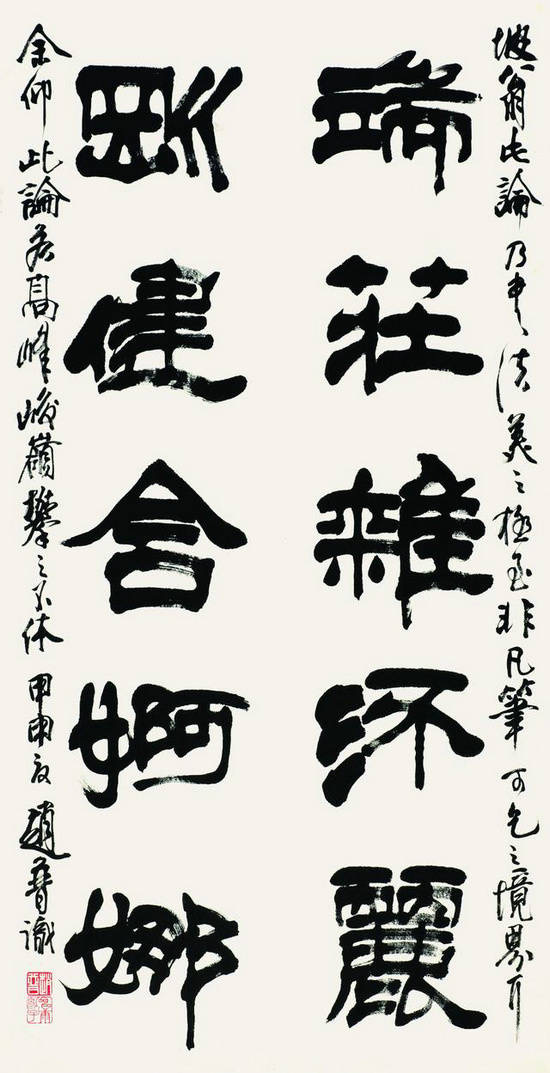 坡翁此論乃書法美之極至非凡筆可之境界耳
端莊雜流麗
剛健含婀娜
余仰此論若高峰峻嶺攀之不休 甲申 趙普識